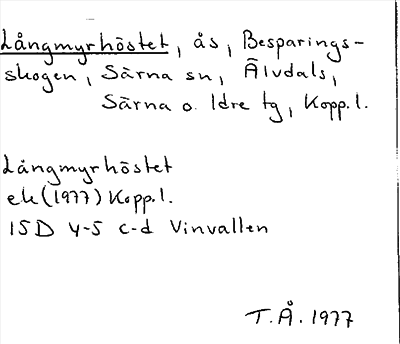 Långmyrhöstet, ås, Besparings-
skogen, Särna sn, Älvdals,
Särna o. Idre tg, Kopp.l.
Långmyrhöstet
ek (1977) Kopp.l.
15D 4-5 c-d Vinvallen
T.Å. 1977